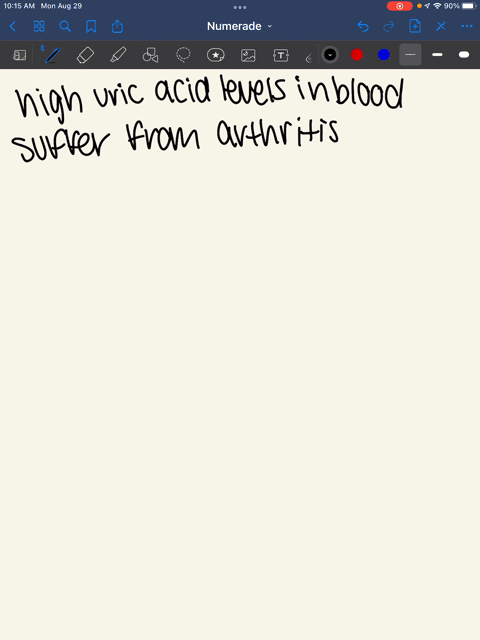 10:15 AM Mon Aug 29 90%
Numerade
high uric acid levels in blood
suffer from arthritis